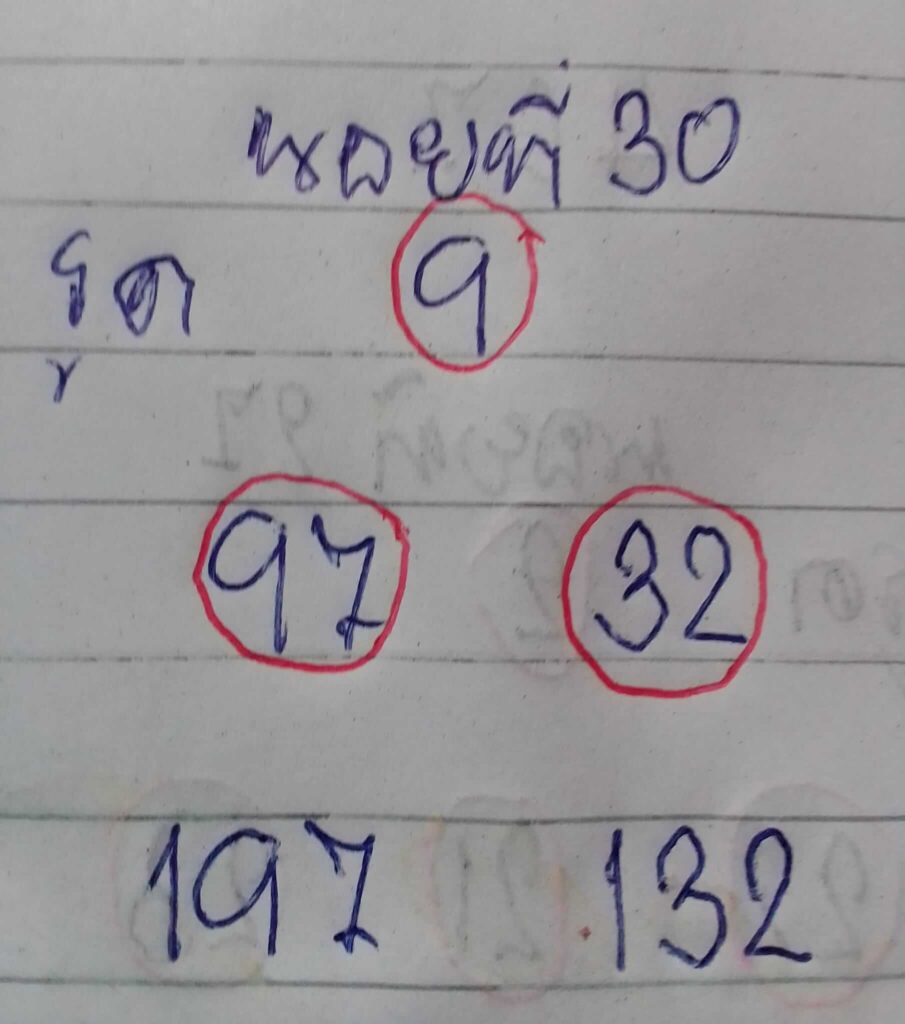 หวยที่ 30
รูด 9
97 32
197 132